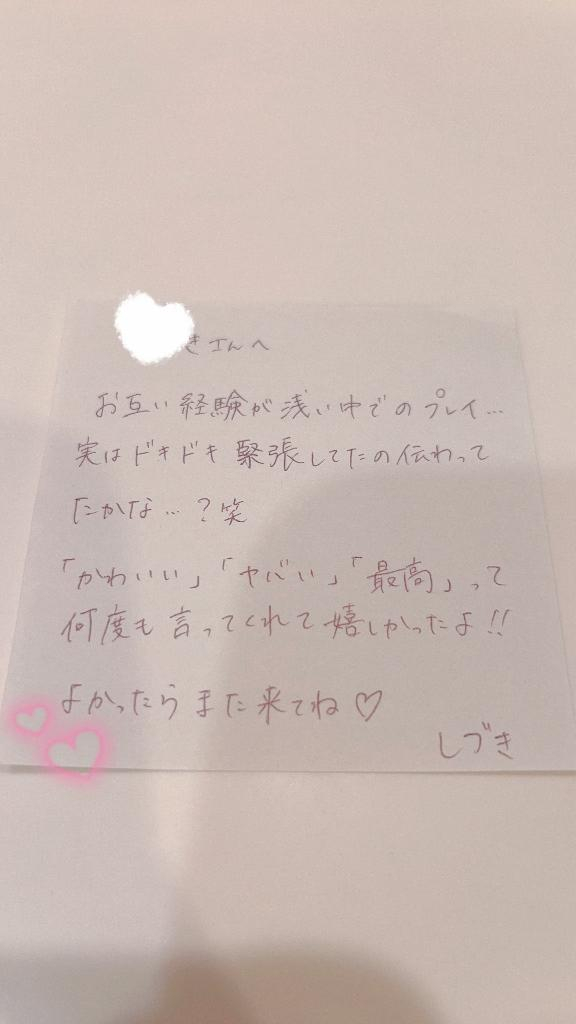 きさんへ
お互い経験が浅い中でのプレイ…
実はドキドキ緊張してたの伝わって
たかな…？笑
「かわいい」「ヤバい」「最高」って
何度も言ってくれて嬉しかったよ!!
よかったらまた来てね♡
しづき